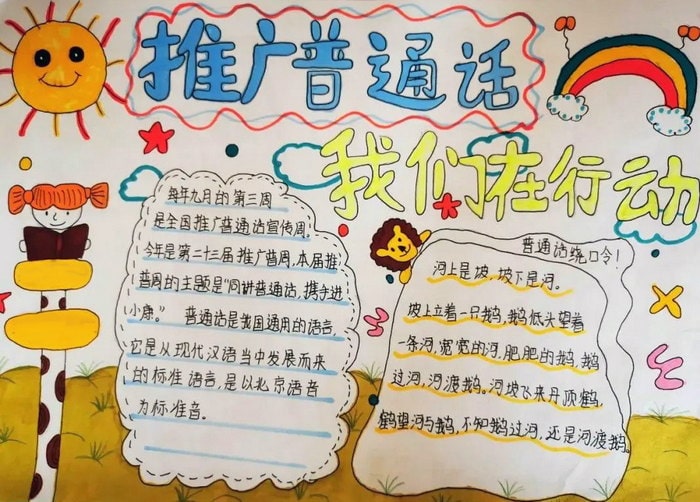 推广普通话
我们在行动
每年九月的第三周
是全国推广普通话宣传周。
今年是第二十三届推广普周,本届推
普周的主题是“同讲普通话,携手进
小康。” 普通话是我国通用的语言,
它是从现代汉语当中发展而来
的标准语言,是以北京语音
为标准音。
普通话绕口令!
河上是坡,坡下是河。
坡上立着一只鹅,鹅低头望着
一条河,宽宽的河,肥肥的鹅,鹅
过河,河渡鹅。河坡飞来丹顶鹤,
鹤望河与鹅,不知鹅过河,还是河渡鹅。